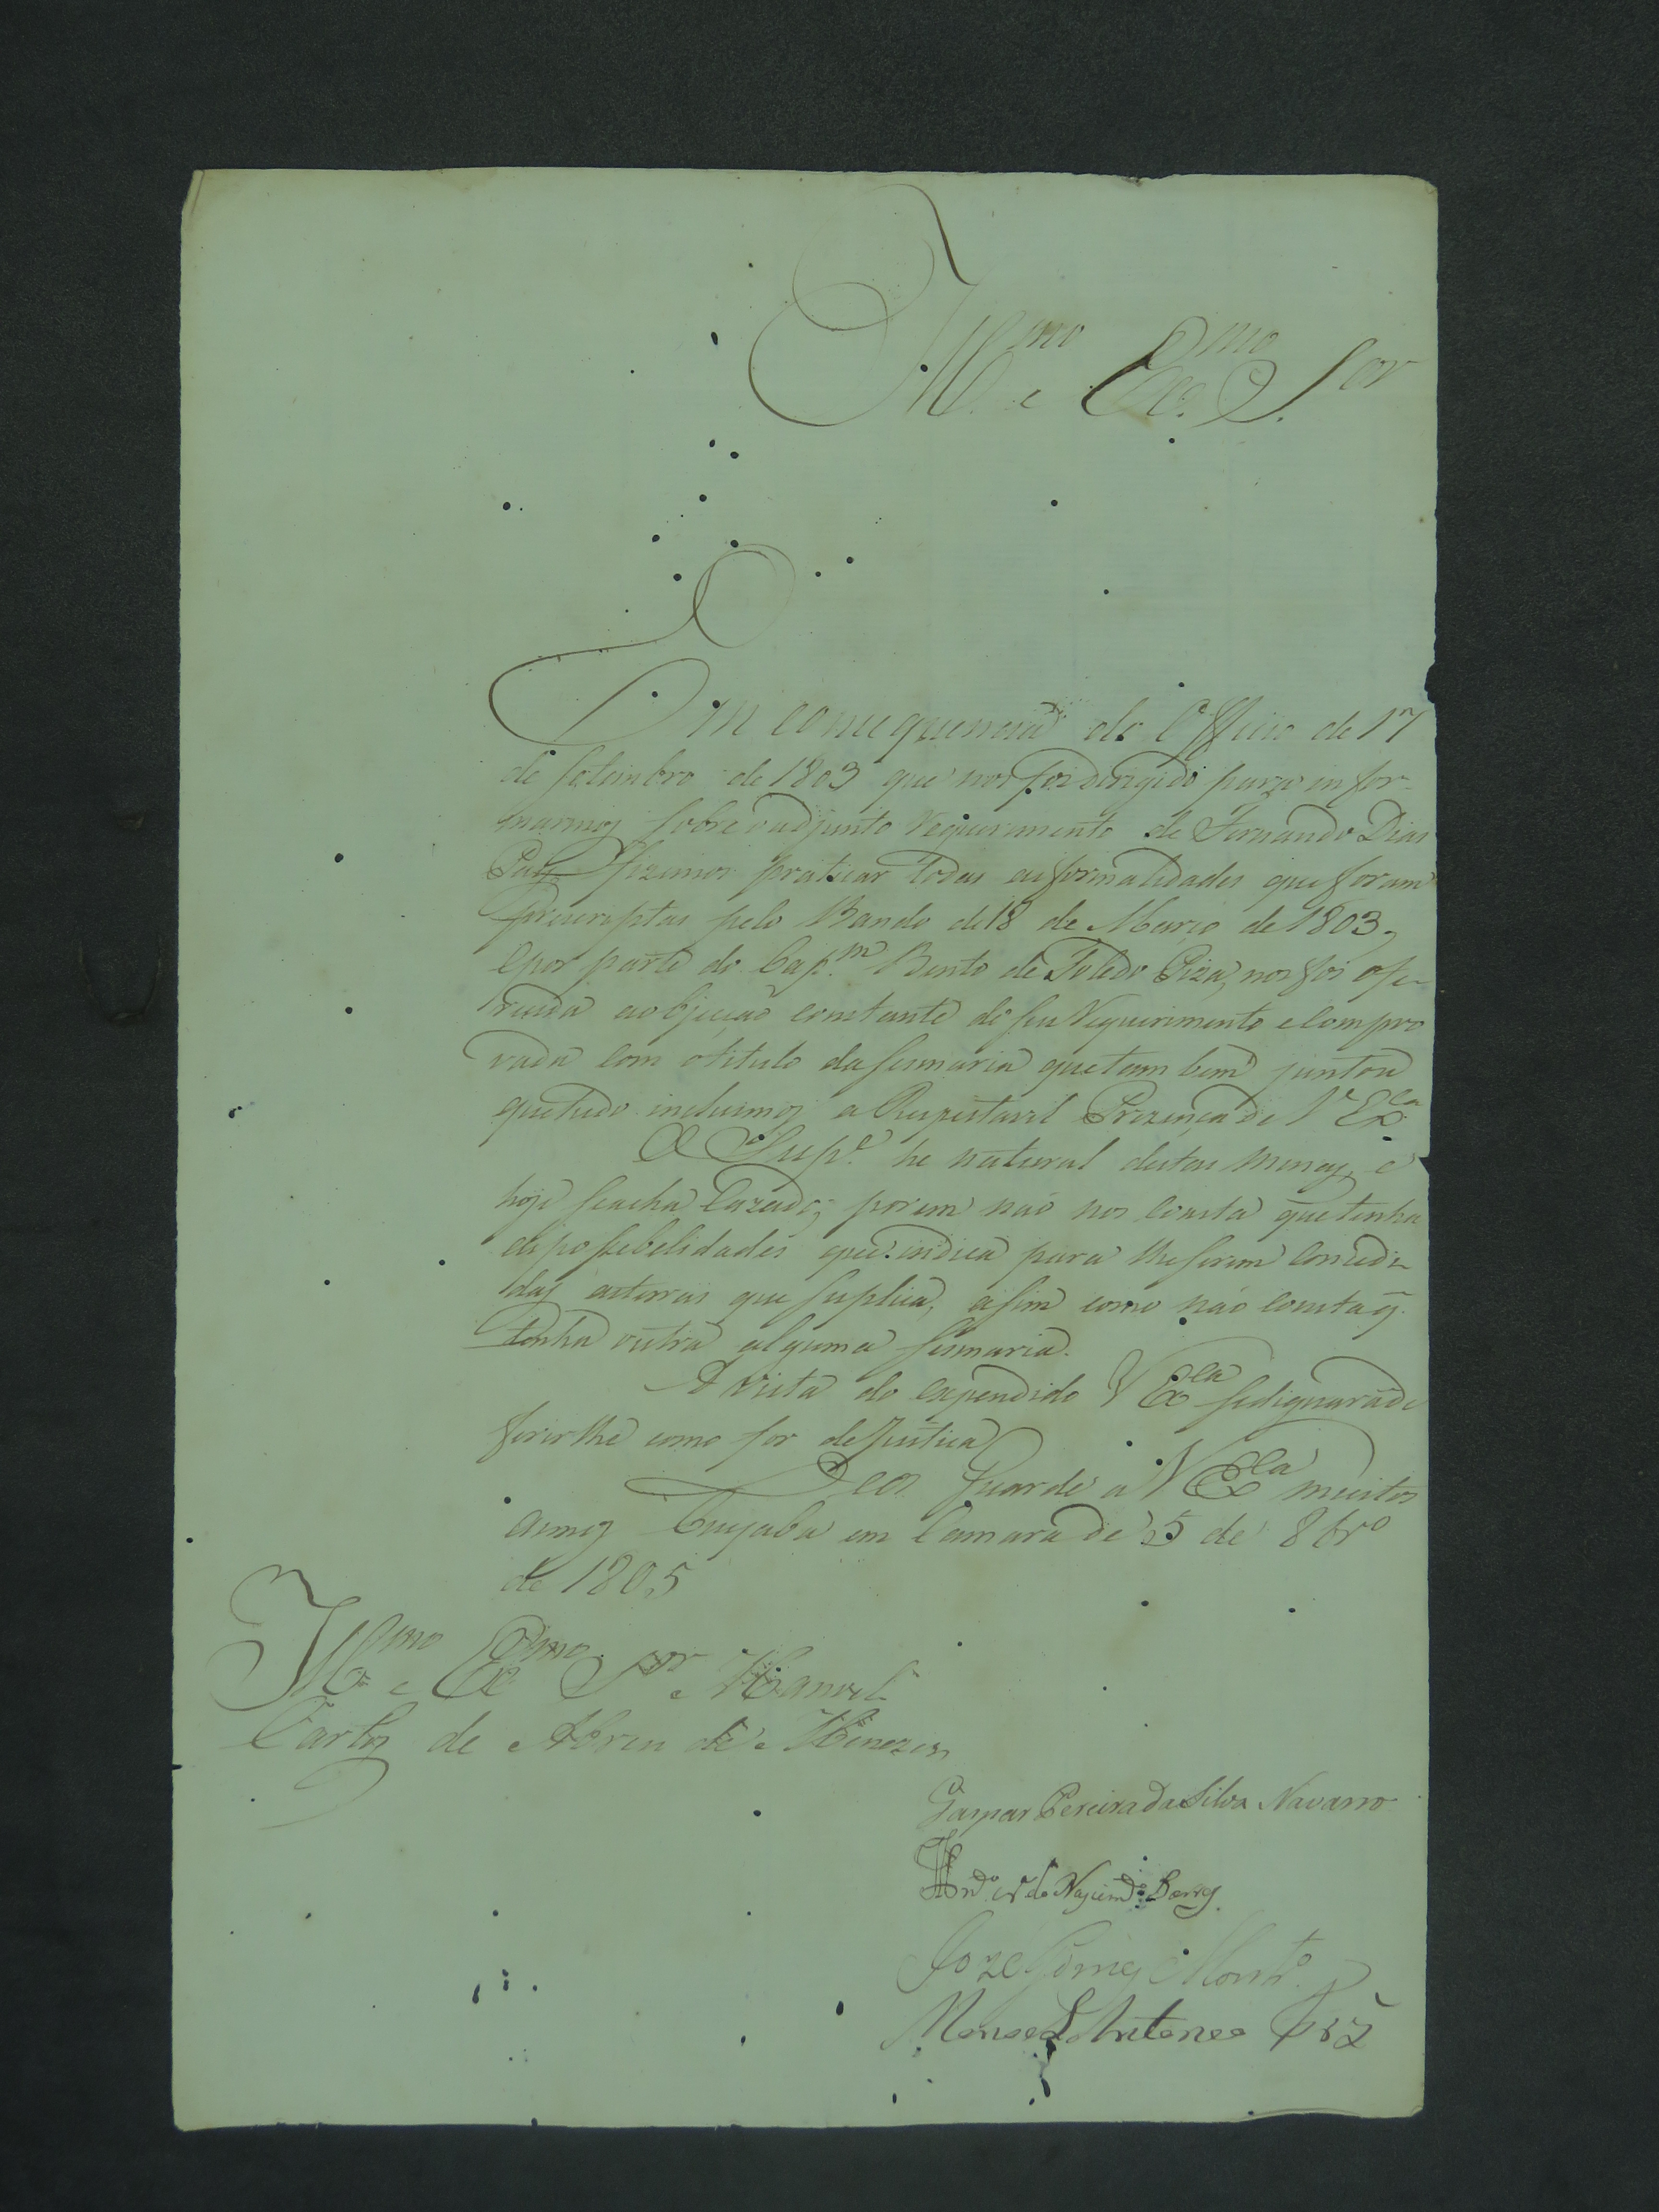 Ill.mo e Ex.mo Sor
Em consequencia do Officio de 17
de setembro de 1803 que nos foi dirigido para infor-
marmos sobre o adjunto requerimento de Fernando Dias
Paes fizemos praticar todas as formalidades que foram
prescriptas pelo Bando de 18 de Março de 1803,
e por parte do Cap.m Bento de Toledo Piza, nos foi ofe-
recida a objecção constante do seu Requerimento e compro
vada com o titulo da sesmaria que tambem juntou
que tudo incluimos a Respeitavel Prezença de V Exca
O Supe. he natural destas Minas, e
hoje se acha cazado, porem não nos consta que tenha
as possebelidades que indica para lhe serem concedi-
das as terras que suplica, asim como não consta q̃
tenha outra alguma sesmaria.
A vista do expendido V Exca se dignará de
ferirlhe como for de Justiça
Deos Guarde a V Exca muitos
annos Cuyaba em Camara de 5 de 8bro
de 1805
Illmo e Exmo Snr Manoel
Carlos de Abreu de Menezes
Gaspar Pereira da Silva Navarro
do Nascimto Borges
Joze Gomes Montro.
Manoel Antoneo